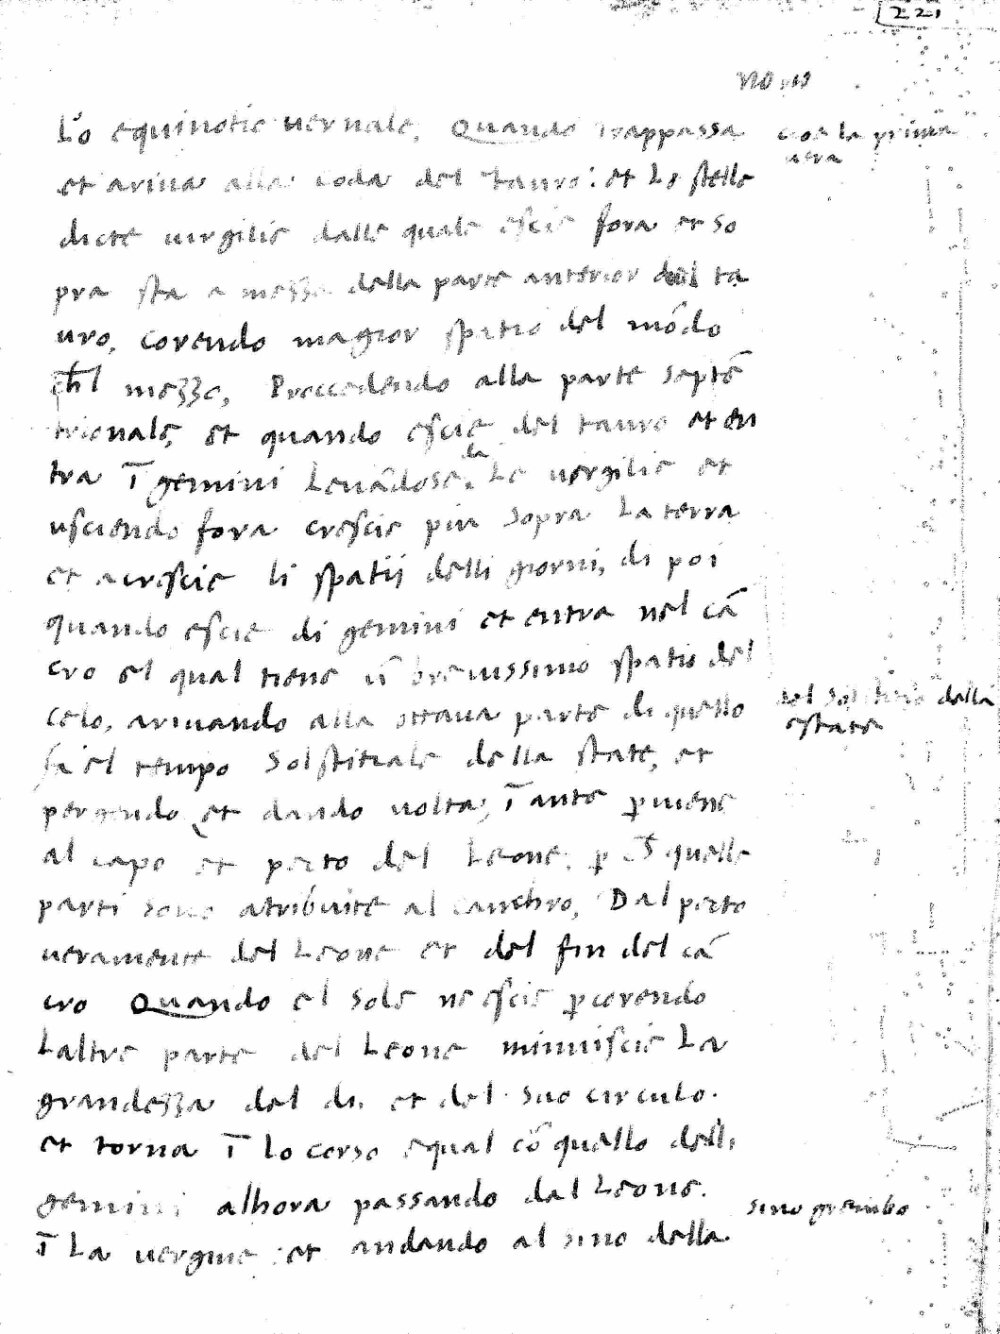 221
Lo equinotio vernale, Quando trappassa
cioe la prima
vera
et ariva alla coda del tauro: et le stelle
dicte virgilie dalle quale escie fora et so
pra sta a mezzo della parte anterior del ta
uro, corendo magior spatio del mōdo
chl mezzo, Proccedendo alla parte septē
trionale, et quando escie del tauro et en
tra ī gemini Levādose la Le vergilie et
usciendo fora crescie piu sopra La terra
et acrescie li spatii delli giorni, di poi
quando escie di gemini et entra nel cā
cro el qual tiene ū brevissimo spatio del
celo, arivando alla ottava parte di quello
del solstitio della
estate
fa el tempo Solstitiale della state, et
pergendo et dando volta, īante ꝑviene
al capo et petto del Leone, ꝑ quelle
parti sono atribuite al canchro, Dal petto
veramente del Leone et del fin del cā
cro Quando el sole ne escie ꝑcorendo
Laltre parte del Leone minuiscie La
grandezza del di, et del suo circulo.
et torna ī lo corso equal cō quello delli
gemini alhora passando dal Leone.
sino grembo
ī La vergine et andando al sino della